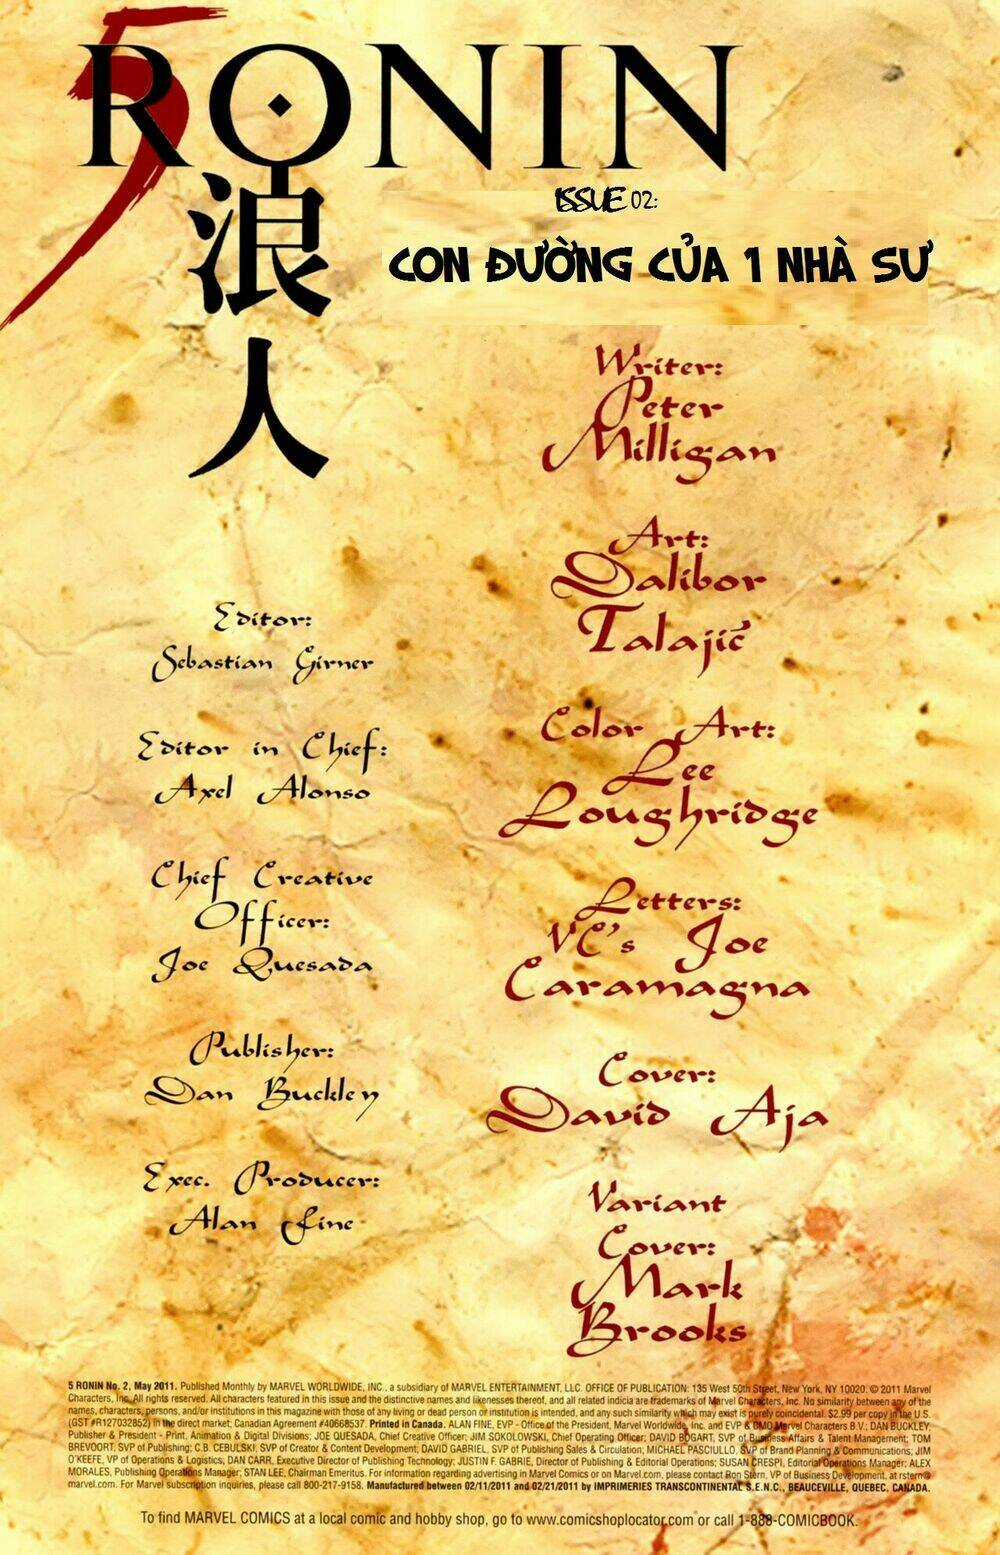 5 RONIN
浪人
ISSUE 02:
CON ĐƯỜNG CỦA 1 NHÀ SƯ
Writer:
Peter
Milligan
Art:
Dalibor
Talajič
Color Art:
Lee
Loughridge
Letters:
VC's Joe
Caramagna
Cover:
David Aja
Variant
Cover:
Mark
Brooks
Editor:
Sebastian Girner
Editor in Chief:
Axel Alonso
Chief Creative
Officer:
Joe Quesada
Publisher:
Dan Buckley
Exec. Producer:
Alan Fine
5 RONIN No. 2, May 2011. Published Monthly by MARVEL WORLDWIDE, INC., a subsidiary of MARVEL ENTERTAINMENT, LLC. OFFICE OF PUBLICATION: 135 West 50th Street, New York, NY 10020. © 2011 Marvel
Characters, Inc. All rights reserved. All characters featured in this issue and the distinctive names and likenesses thereof, and all related indicia are trademarks of Marvel Characters, Inc. No similarity between any of the
names, characters, persons, and/or institutions in this magazine with those of any living or dead person or institution is intended, and any such similarity which may exist is purely coincidental. $2.99 per copy in the U.S.
(GST #R127032852) in the direct market; Canadian Agreement #40668537. Printed in Canada. ALAN FINE, EVP - Office of the President, Marvel Worldwide, Inc. and EVP & CMO Marvel Characters B.V.; DAN BUCKLEY,
Publisher & President - Print, Animation & Digital Divisions; JOE QUESADA, Chief Creative Officer; JIM SOKOLOWSKI, Chief Operating Officer; DAVID BOGART, SVP of Business Affairs & Talent Management; TOM
BREVOORT, SVP of Publishing; C.B. CEBULSKI, SVP of Creator & Content Development; DAVID GABRIEL, SVP of Publishing Sales & Circulation; MICHAEL PASCIULLO, SVP of Brand Planning & Communications; JIM
O'KEEFE, VP of Operations & Logistics; DAN CARR, Executive Director of Publishing Technology; JUSTIN F. GABRIE, Director of Publishing & Editorial Operations; SUSAN CRESPI, Editorial Operations Manager; ALEX
MORALES, Publishing Operations Manager; STAN LEE, Chairman Emeritus. For information regarding advertising in Marvel Comics or on Marvel.com, please contact Ron Stern, VP of Business Development, at rstern@
marvel.com. For Marvel subscription inquiries, please call 800-217-9158. Manufactured between 02/11/2011 and 02/21/2011 by IMPRIMERIES TRANSCONTINENTAL S.E.N.C., BEAUCEVILLE, QUEBEC, CANADA.
To find MARVEL COMICS at a local comic and hobby shop, go to www.comicshoplocator.com or call 1-888-COMICBOOK.